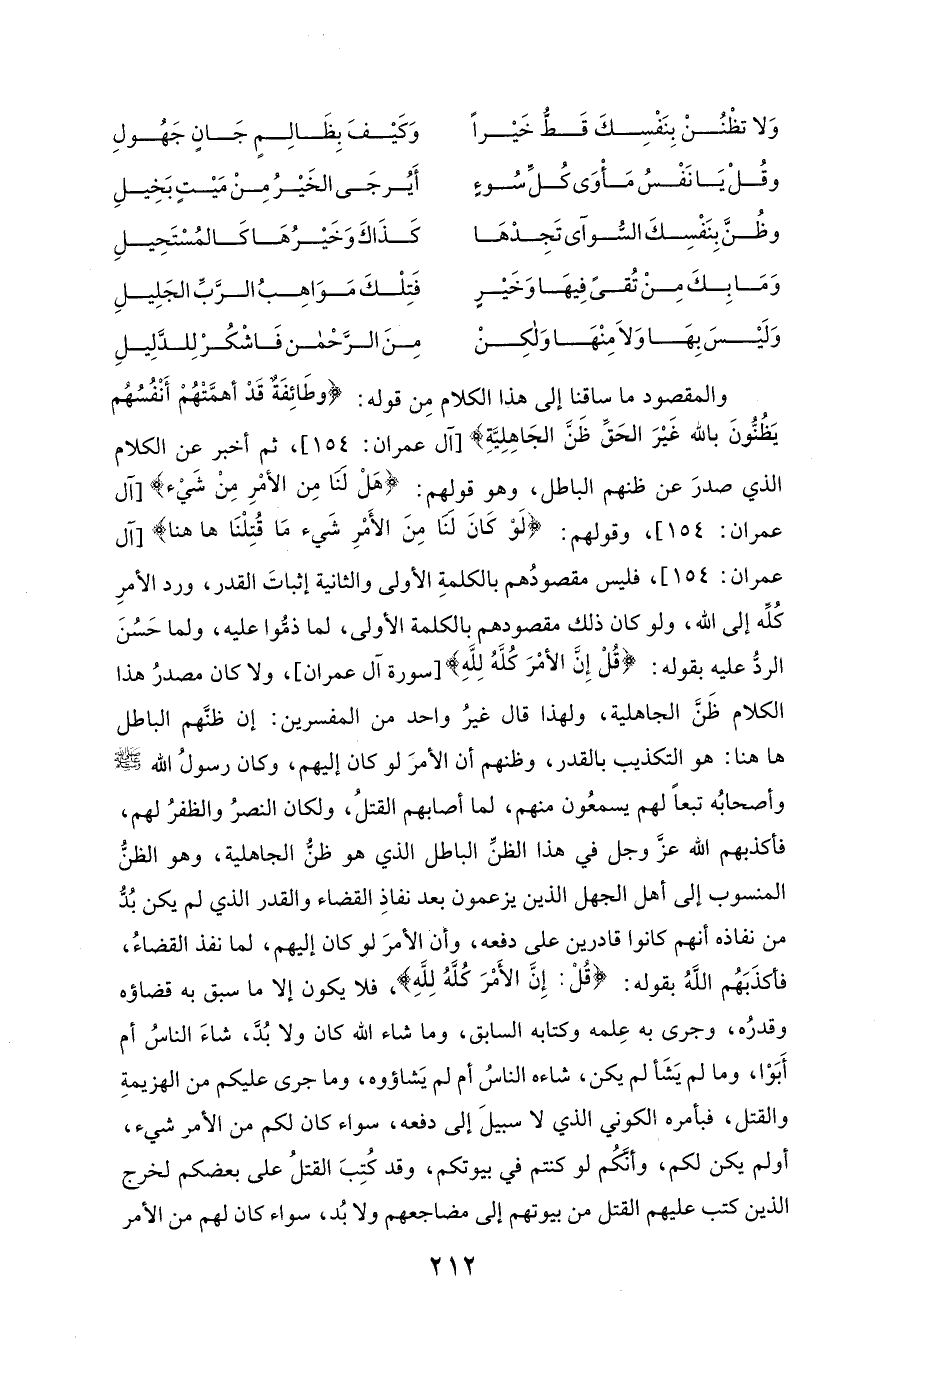 وَلا تظْنُنْ بِنَفْسِكَ قَطُّ خَيْراً وَكَيْفَ بِظَالِمٍ جَانٍ جَهُولِ
وقُلْ يَا نَفْسُ مَأْوَى كُلِّ سُوءٍ أَيُرجَى الخَيْرُ مِنْ مَيْتٍ بَخِيلِ
وظُنَّ بِنَفْسِكَ السُّوآى تَجِدْهَا كَذَاكَ وَخَيْرُهَا كَالمُسْتَحِيلِ
وَمَا بِكَ مِنْ تُقىً فِيهَا وَخَيْرٍ فَتِلْكَ مَوَاهِبُ الرَّبِّ الجَلِيلِ
وَلَيْسَ بِهَا وَلاَ مِنْهَا وَلكِنْ مِنَ الرَّحْمٰنِ فَاشْكُرْ لِلدَّلِيلِ
والمقصود ما ساقنا إلى هذا الكلام مِن قوله: ﴿وطَائِفَةٌ قَدْ أهمَّتْهُمْ أَنْفُسُهُم
يَظُنُّونَ بالله غَيْرَ الحَقِّ ظَنَّ الجَاهِلِيَّةِ﴾ [آل عمران: ١٥٤]، ثم أخبر عن الكلام
الذي صدرَ عن ظنهم الباطل، وهو قولهم: ﴿هَلْ لَنَا مِن الأمْرِ مِنْ شَيْء﴾ [آل
عمران: ١٥٤]، وقولهم: ﴿لَوْ كَانَ لَنَا مِنَ الأَمْرِ شَيء مَا قُتِلْنَا ها هنا﴾ [آل
عمران: ١٥٤]، فليس مقصودُهم بالكلمةِ الأولى والثانية إثباتَ القدر، ورد الأمرِ
كُلِّه إلى الله، ولو كان ذلك مقصودهم بالكلمة الأولى، لما ذمُّوا عليه، ولما حَسُنَ
الردُّ عليه بقوله: ﴿قُلْ إِنَّ الأمْرَ كُلَّهُ لِلَّهِ﴾ [سورة آل عمران]، ولا كان مصدرُ هذا
الكلام ظَنَّ الجاهلية، ولهذا قال غيرُ واحد من المفسرين: إن ظنَّهم الباطل
ها هنا: هو التكذيب بالقدر، وظنهم أن الأمرَ لو كان إليهم، وكان رسولُ الله ﷺ
وأصحابُه تبعاً لهم يسمعُون منهم، لما أصابهم القتلُ، ولكان النصرُ والظفرُ لهم،
فأكذبهم الله عزَّ وجل في هذا الظنِّ الباطل الذي هو ظنُّ الجاهلية، وهو الظنُّ
المنسوب إلى أهل الجهل الذين يزعمون بعد نفاذِ القضاء والقدر الذي لم يكن بُدٌّ
من نفاذه أنهم كانوا قادرين على دفعه، وأن الأمرَ لو كان إليهم، لما نفذ القضاءُ،
فأكذَبَهُم اللَّهُ بقوله: ﴿قُلْ: إِنَّ الأَمْرَ كُلَّهُ لِلَّهِ﴾، فلا يكون إلا ما سبق به قضاؤه
وقدرُه، وجرى به عِلمه وكتابه السابق، وما شاء الله كان ولا بُدَّ، شاءَ الناسُ أم
أَبَوْا، وما لم يَشَأ لم يكن، شاءه الناسُ أم لم يَشاؤوه، وما جرى عليكم من الهزيمةِ
والقتل، فبأمره الكوني الذي لا سبيلَ إلى دفعه، سواء كان لكم من الأمر شيء،
أولم يكن لكم، وأنَّكُم لو كنتم في بيوتكم، وقد كُتِبَ القتلُ على بعضكم لخرج
الذين كتب عليهم القتل من بيوتهم إلى مضاجعهم ولا بُد، سواء كان لهم من الأمر
٢١٢